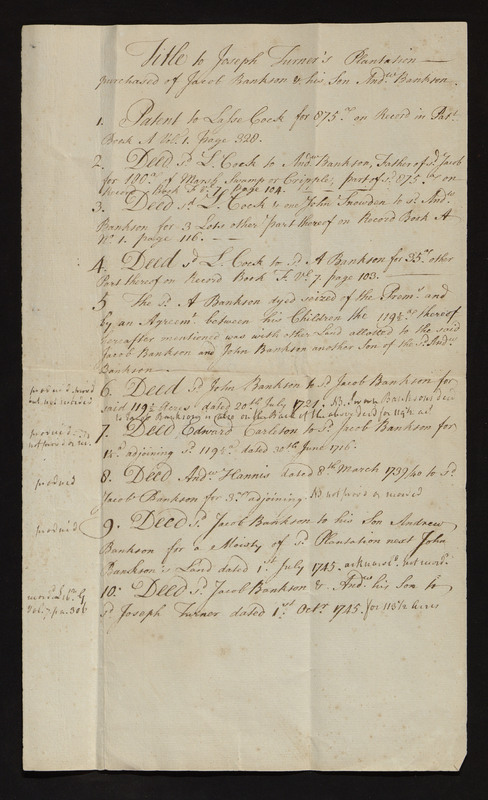 Title to Joseph Turner's Plantation
purchased of Jacob Bankson & his Son Andw Bankson
1. Patent to Lasse Cock for 875 as on Record in Patt
Book A Vol. 1. page 328.
2. Deed sd L. Cock to Andw Bankson, Father of sd Jacob
for 100 as of Marsh Swamp or Cripple, part of sd 875 as on
Record Book F. Vo. 7 page 104.
3. Deed sd L. Cock & one John Snowden to sd Andw
Bankson for 3 Lots other part thereof on Record Book A
No 1. page 116.
4. Deed sd L. Cock to sd A Bankson for 35 as other
Part thereof on Record Book F. Vo. 7. page 103.
5 The sd A Bankson dyed seized of the Premes and
by an Agreemt between his Children the 119½ as thereof
hereafter mentioned was with other Land allotted to the said
Jacob Bankson and John Bankson another Son of the sd Andw
Bankson
6. Deed sd John Bankson to sd Jacob Bankson for
said 119½ Acres dated 20th July 1721.
to Jacob Bankson is also on the Back of the above deed for 119½ as
7. Deed Edward Carleton to sd Jacob Bankson for
adjoining sd 119½ as dated 30th June 1716.
8. Deed Andw Hannis dated 8th March 1739/40 to sd
Jacob Bankson for 3 as adjoining NB not proved or record
proved
9. Deed sd Jacob Bankson to his Son Andrew
Bankson for a Moiety of sd Plantation next John
Bankson's Land dated 1st July 1745 acknowld not record
10. Deed sd Jacob Bankson & Andw his Son to
sd Joseph Turner dated 1st Octr 1745. for 115½ Acres